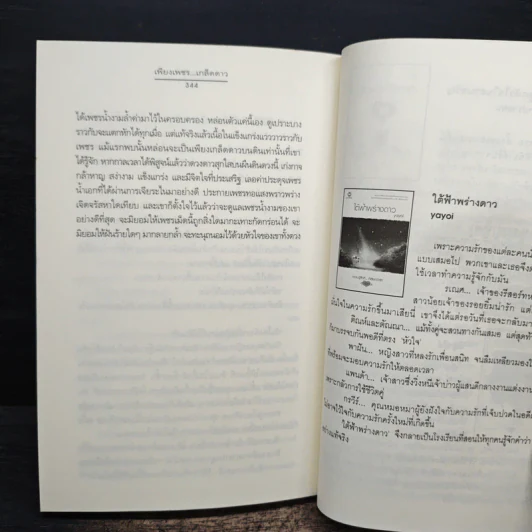 เพียงเพชร...เกล็ดดาว
344
ได้เพชรน้ำงามล้ำค่ามาไว้ในครอบครอง หล่อนตัวแค่นี้เอง ดูเปราะบาง
ราวกับจะแตกหักได้ทุกเมื่อ แต่แท้จริงแล้วเนื้อในแข็งแกร่งแวววาวราวกับ
เพชร แม้แรกพบนั้นหล่อนจะเป็นเพียงเกล็ดดาวบนดินเท่านั้นที่เขา
ได้รู้จัก หากกาลเวลาได้พิสูจน์แล้วว่าดวงดาวสุกใสบนผืนดินดวงนี้ เก่งกาจ
กล้าหาญ สง่างาม แข็งแกร่ง และมีจิตใจที่ประเสริฐ เลอค่าประดุจเพชร
น้ำเอกที่ได้ผ่านการเจียระไนมาอย่างดี ประกายเพชรทอแสงพราวพร่าง
เจิดจรัสหาใดเทียบ และเขาก็ตั้งใจไว้แล้วว่าจะดูแลเพชรน้ำงามของเขา
อย่างดีที่สุด จะมิยอมให้เพชรเม็ดนี้ถูกสิ่งใดมากะเทาะกัดกร่อนได้ จะ
มิยอมให้ฝันร้ายใดๆ มากลายกล้ำ จะทะนุถนอมไว้ด้วยหัวใจของเขาทั้งดวง
ใต้ฟ้าพร่างดาว
yayoi
ใต้ฟ้าพร่างดาว
yayoi
เพราะความรักของแต่ละคน
แบบเสมอไป พวกเขาและเธอจึง
ใช้เวลาทำความรู้จักกับมัน
รณศ... เจ้าของรีสอร์ท
สาวน้อยเจ้าของรอยยิ้มน่ารัก แต่
มั่นใจในความรักขึ้นมาเสียนี่ เขาจึงได้แต่รอวันที่เธอจะกลับมา
ดิณห์และตัณณา... แม้ทั้งคู่จะสวนทางกันเสมอ แต่สุดท้า
ก็มาบรรจบกันพอดีที่ตรง 'หัวใจ'
พามัน... หญิงสาวที่หลงรักเพื่อนสนิท จนลืมเหลียวมอง
ที่พร้อมจะมอบความรักให้ตลอดเวลา
แพนด้า... เจ้าสาวซึ่งวิ่งหนีเจ้าบ่าวผู้แสนดีกลางงานแต่งงาน
เพราะกลัวการใช้ชีวิตคู่
กรวีร์... คุณหมอหมาผู้ยังฝังใจกับความรักที่เจ็บปวดในอดีต
ไม่อาจไว้ใจกับความรักครั้งใหม่ที่เกิดขึ้น
'ใต้ฟ้าพร่างดาว' จึงกลายเป็นโรงเรียนที่สอนให้ทุกคนรู้จักคำว่า
อย่างแท้จริง